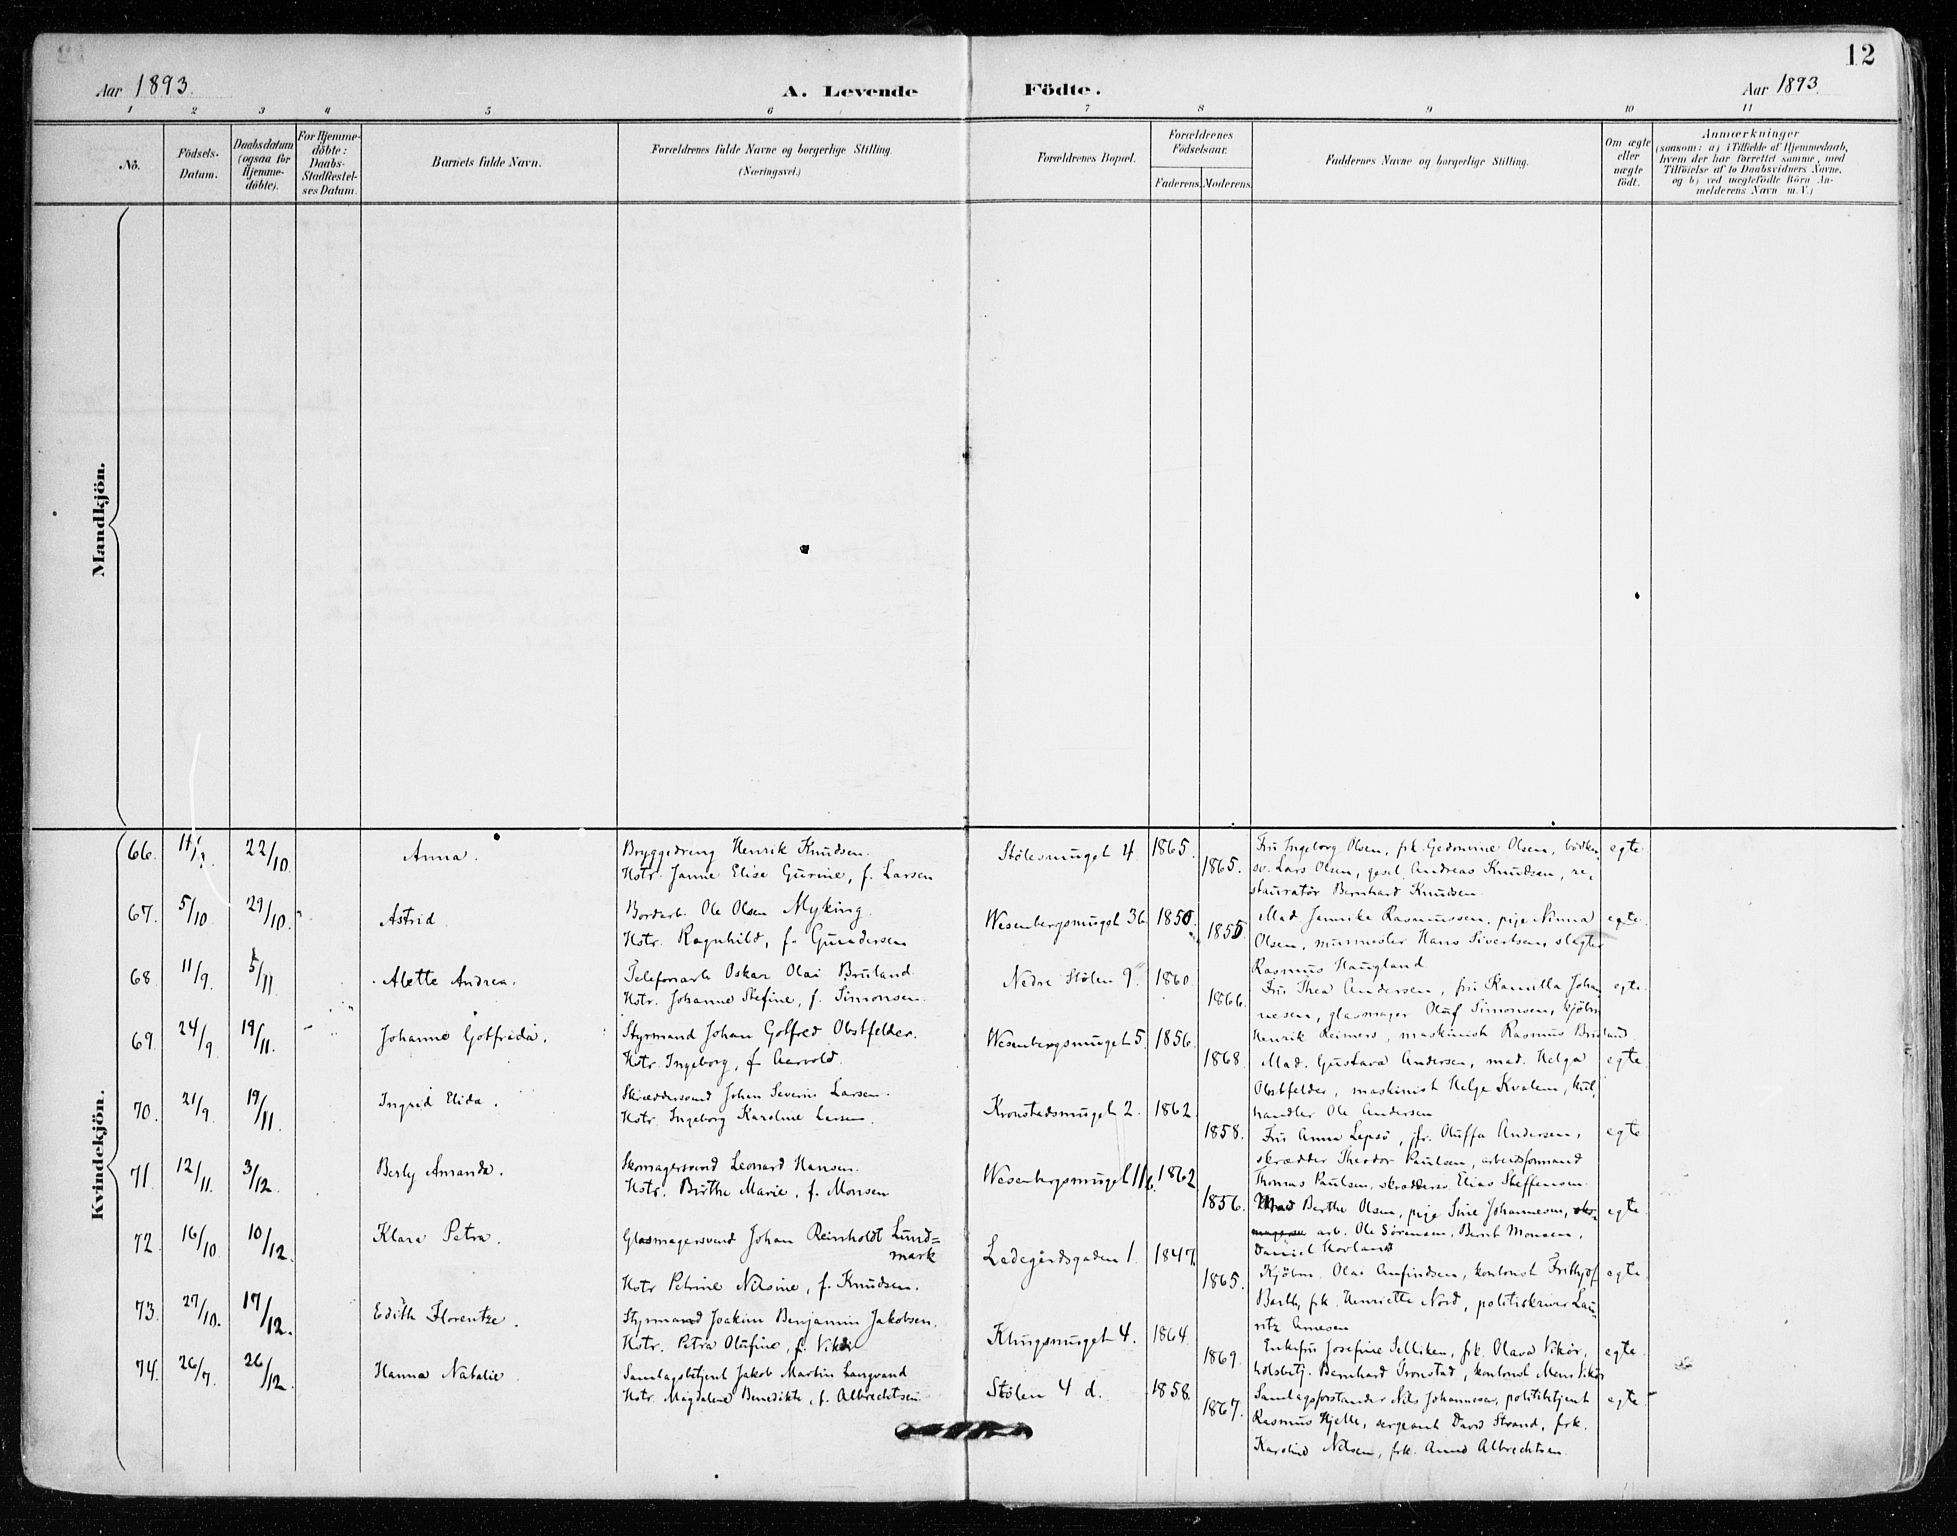 12
Aar 1893.
A. Levende Födte.
Aar 1893.
1 2 3 4 5 6 7 8 9 10 11
Nô.
Födsels-Datum.
Daabsdatum (ogsaa for Hjemme-döbte).
For Hjemme-döbte: Daabs-Stadfæstel-ses Datum.
Barnets fulde Navn.
Forældrenes fulde Navne og borgerlige Stilling.
(Næringsvei.)
Forældrenes Bopæl.
Forældrenes Födselsaar.
Faderens. Moderens.
Faddernes Navne og borgerlige Stilling.
Om ægte eller uægte födt.
Anmærkninger
(saasom: a) i Tilfælde af Hjemmedaab, hvem der har forrettet samme, med Tilföielse af to Daabsvidners Navne, og b) ved uægtefödte Börn An-melderens Navn m. V.)
Mandkjön.
Kvindekjön.
66. 22/10 Anna. Bryggedreng Henrik Knudsen.
Hstr. Janne Elise Gurine, f. Larsen
Stölesmuget 4. 1865. 1865.
Fru Ingeborg Olsen, frk. Gedomine Olsen, bödker
sv. Lars Olsen, gesel. Andreas Knudsen, re-
stauratör Bernhard Knudsen
egte.
67. 5/10 29/10. Astrid. Bordarb. Ole Olsen Myking.
Hstr. Ragnhild, f. Gundersen
Wesenbergsmuget 3b 1850. 1855
Mad Jannike Rasmussen, pige Ninna
Olsen, murmester Hans Sivertsen, slagter
Rasmus Haugland
egte.
68. 11/9. 5/11 Alette Andrea. Telefonarb Oskar Olai Bruland
Hstr. Johanne Stefine, f. Simonsen.
Nedre Stölen 9. 1860. 1866.
Fru Thea Andersen, fru Kamilla Johan
nesen, glasmager Oluf Simonsen, kjöbm
Henrik Reimers, maskinist Rasmus Bruland.
egte.
69. 24/9 19/11. Johanne Gotfreda. Styrmand Johan Gotfred Obstfelder.
Hstr. Ingeborg, f. Aarvold.
Wesenbergsmuget 5. 1856. 1868
Mad. Gustava Andersen, mad. Helga
Obstfelder, maskinist Helge Kvalem, kul-
handler Ole Andersen
egte.
70. 21/9. 19/11. Ingrid Elida. Skræddersvend Johan Severin Larsen.
Hstr. Ingeborg Karoline Larsen.
Kronstadsmuget 2. 1862. 1858.
Fru Anna Lepsö, jfr. Oluffa Andersen,
skrædder Theodor Paulsen, arbeidsformand
Thomas Paulsen, Elias Steffensen.
egte
71. 12/11. 3/12. Berly Amanda. Skomagersvend Leonard Hansen.
Hstr. Birthe Marie, f. Monsen
Wesenbergsmuget 11b. 1862. 1856.
Mad Berthe Olsen, pige Sine Johannesen,
arb. Ole Sörensen, Bernt Monsen,
Daniel Hovland
egte.
72. 16/10. 10/12. Klara Petra. Glasmagersvend Johan Reinholdt Lund=
mark
Hstr Petrine Nilsine, f. Knudsen.
Ladegårdsgaden 1. 1847. 1865.
Kjöbm. Olai Anfindsen, kontorist Frithjof
Barth, frk. Henriette Nord, politiskriver Lau-
ritz Arnesen
egte.
73. 27/10. 17/12. Edith Florentze. Styrmand Joakim Benjamin Jakobsen.
Hstr. Petra Olufine, f. Vikör
Klugsmuget 4. 1864. 1869.
Enkefru Josefine Selliken, frk. Olava Vikör,
Bernhard Tronstad, kontorist Mons Vikör
egte.
74. 26/7. 26/12. Hanna Natalie. Samlagsbetjent Jakob Martin Langvand
Hstr. Magdalene Benedikte, f. Albrechtsen
Stölen 4 d. 1858. 1867.
Samlagsforstander Nils Johannesen, politibetjent
Rasmus Hjelle, sergeant David Strand, frk.
Karoline Nilsen, frk. Anna Albrechtsen.
egte.